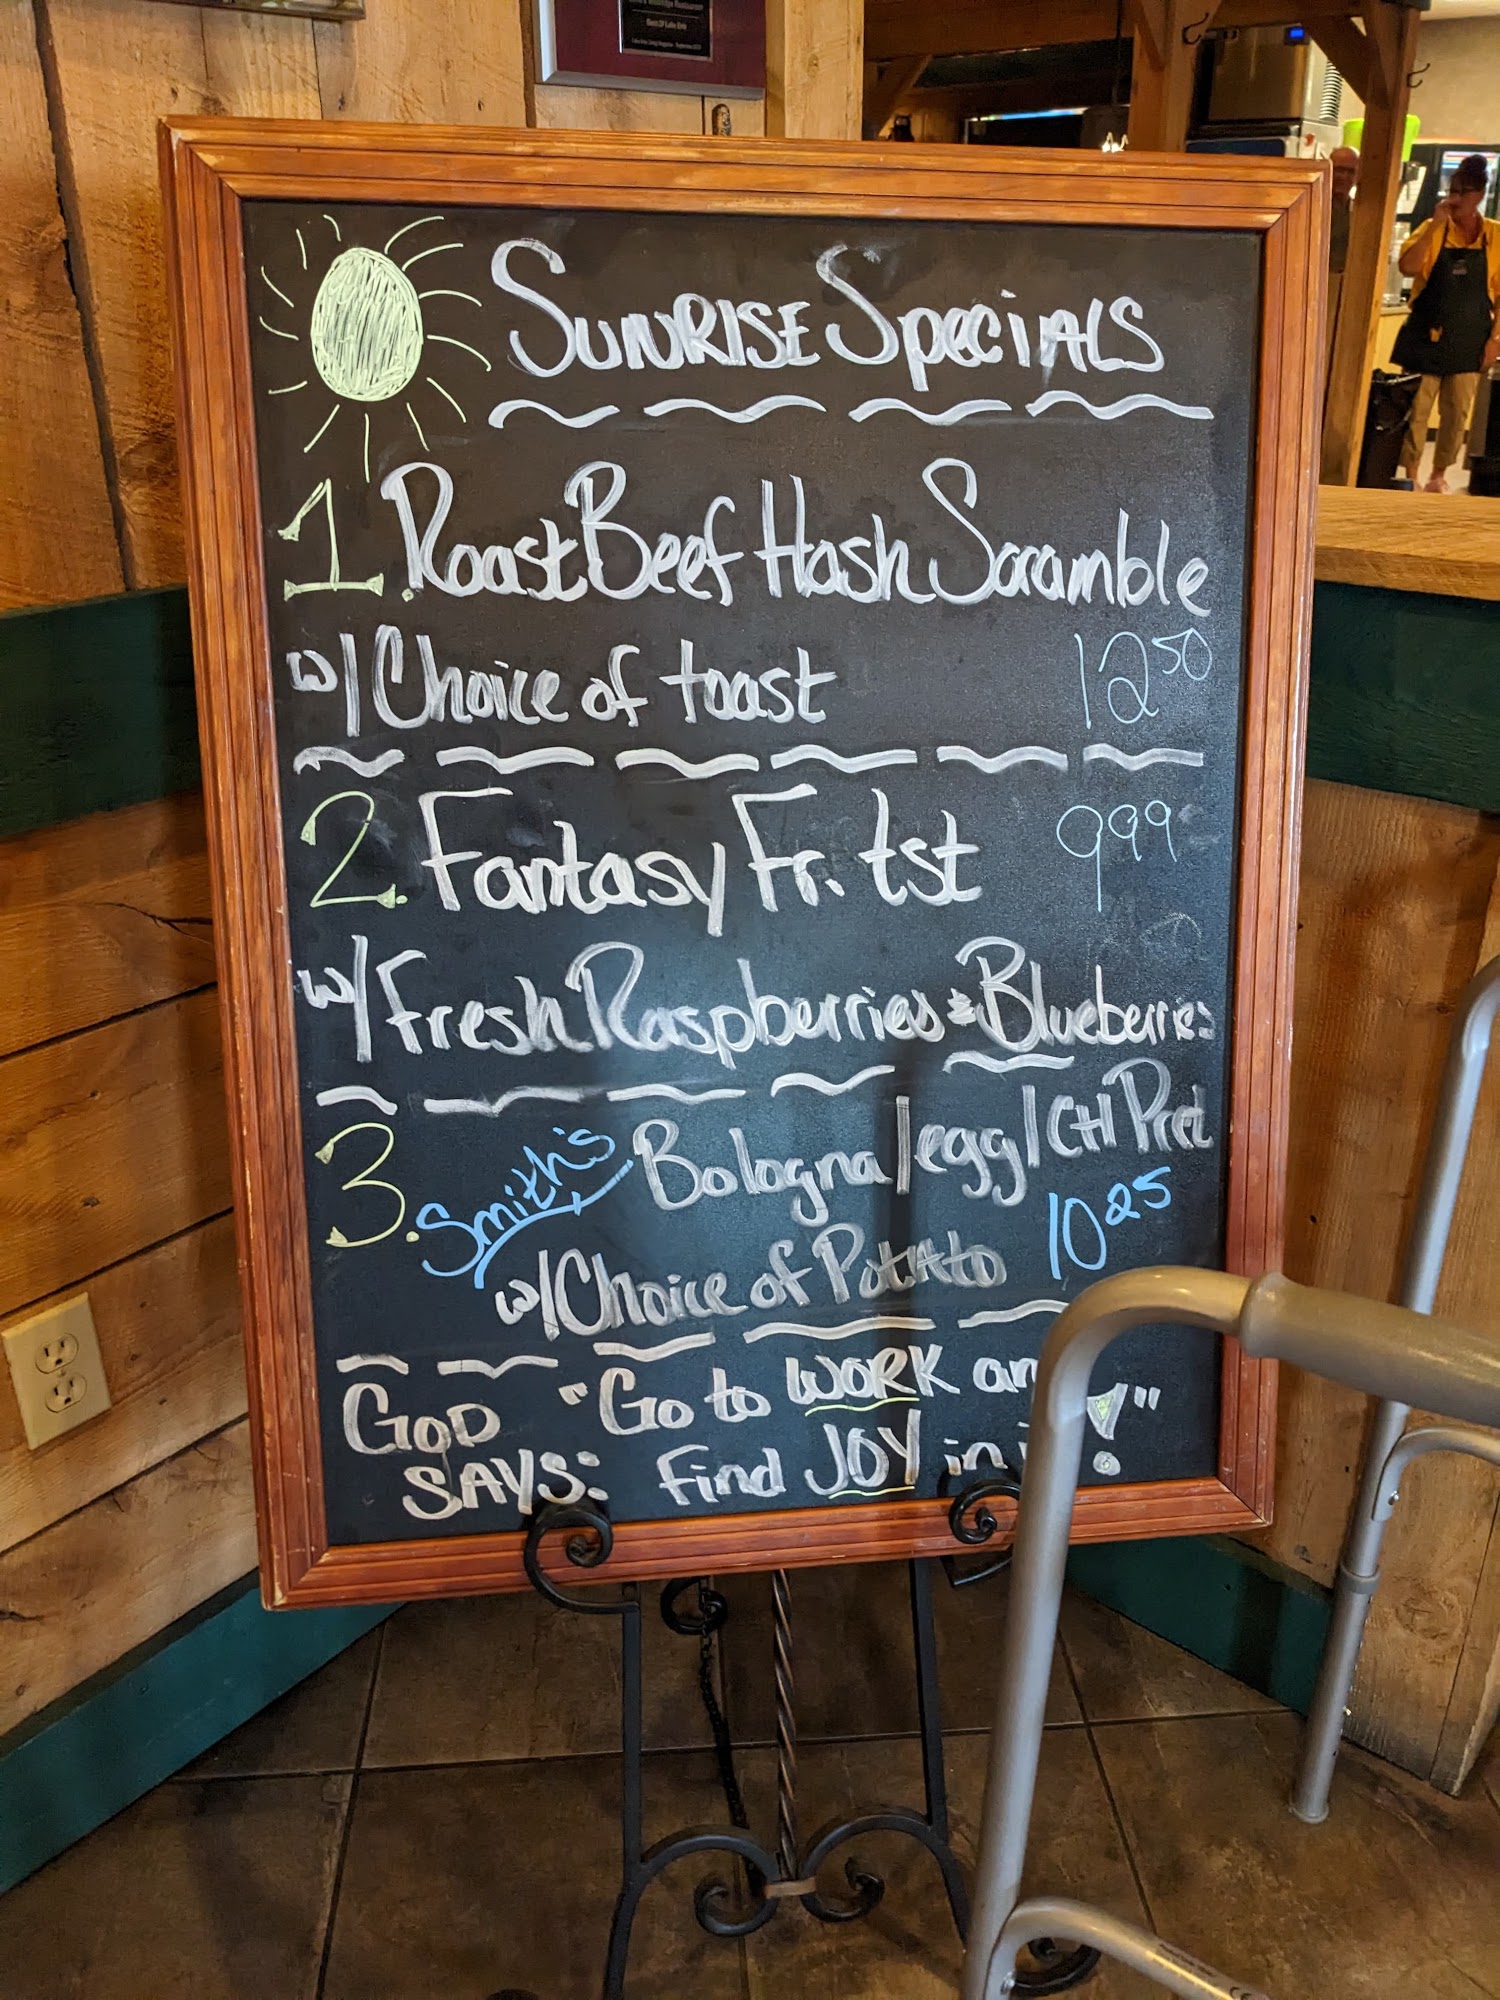 Best Of Lake Erie
SUNRISE SpeciALS
1. Roast Beef Hash Scramble
w/ Choice of toast 12 50
2. Fantasy Fr. tst 9 99
w/ Fresh Raspberries & Blueberries
3. Smith's Bologna/egg/CH Pretzel
w/ Choice of Potato 10 25
GOD "Go to WORK
SAYS: Find JOY in